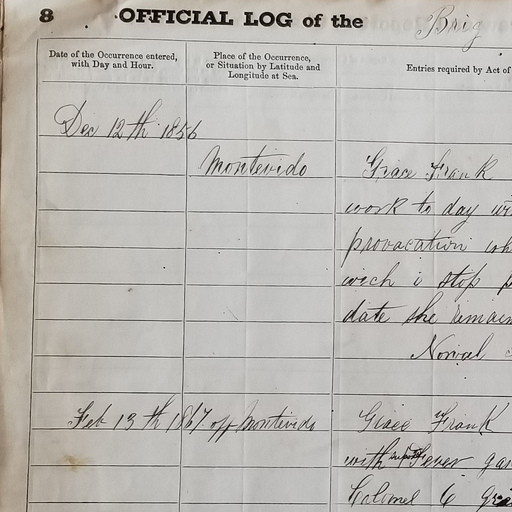 8 OFFICIAL LOG of the Brig
Date of the Occurrence entered, with Day and Hour.
Place of the Occurrence, or Situation by Latitude and Longitude at Sea.
Entries required by Act of
Dec 12th 1856
Montevido
Grace Frank
work to day
provacation
wich i stop
date she remain
Feb 13th 1867 off Montevido
Grace Frank
with Fever
Colomel 6